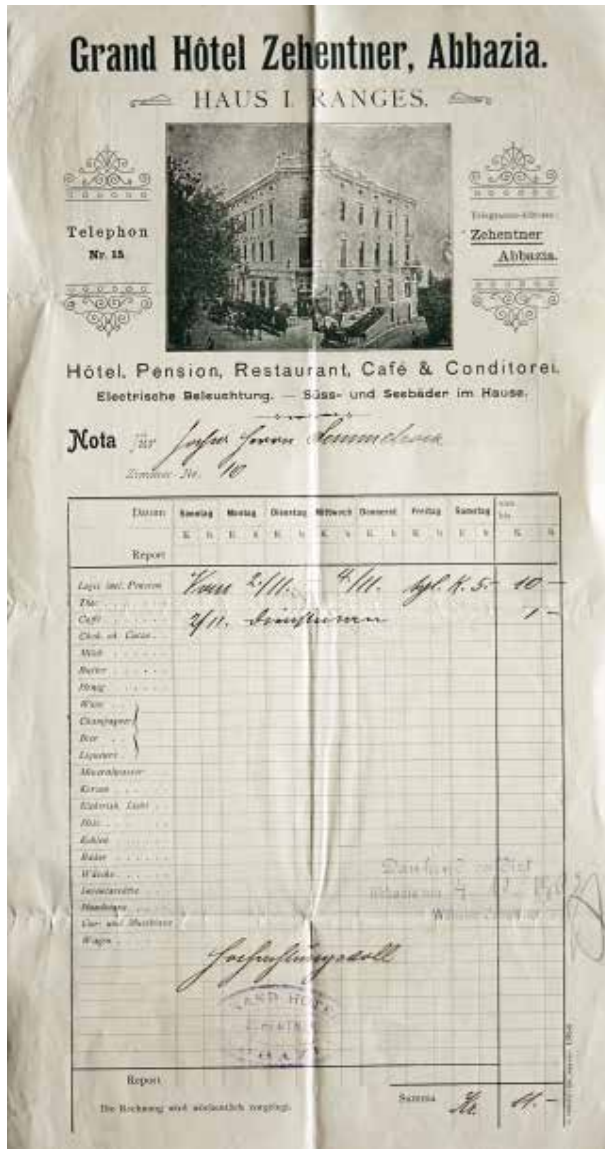 Grand Hôtel Zehentner, Abbazia.
HAUS I. RANGES.
Telephon
Nr. 15
Telegramm-Adresse:
Zehentner
Abbazia.
Hôtel, Pension, Restaurant, Café & Conditorei.
Electrische Beleuchtung. — Süss- und Seebäder im Hause.
Nota für Herrn
Zimmer Nr. 10
Datum Sonntag Montag Dienstag Mittwoch Donnerst Freitag Samstag
K h K h K h K h K h K h K h K h
Report
Logis incl. Pension Vom 2./11. 4./11. tgl. K. 5.- 10.—
Thee
Café 2/11. 1 —
Chok. od. Cacao
Milch
Butter
Honig
Wein
Champagner
Bier
Liqueure
Mineralwasser
Kerzen
Elektrisch. Licht
Holz
Kohlen
Bäder
Wäsche
Wagen
Dankend
Abbazia
Hochachtungsvoll
GRAND HOTEL
Report
Die Rechnung wird wöchentlich vorgelegt.
Summa Kr. 11.—